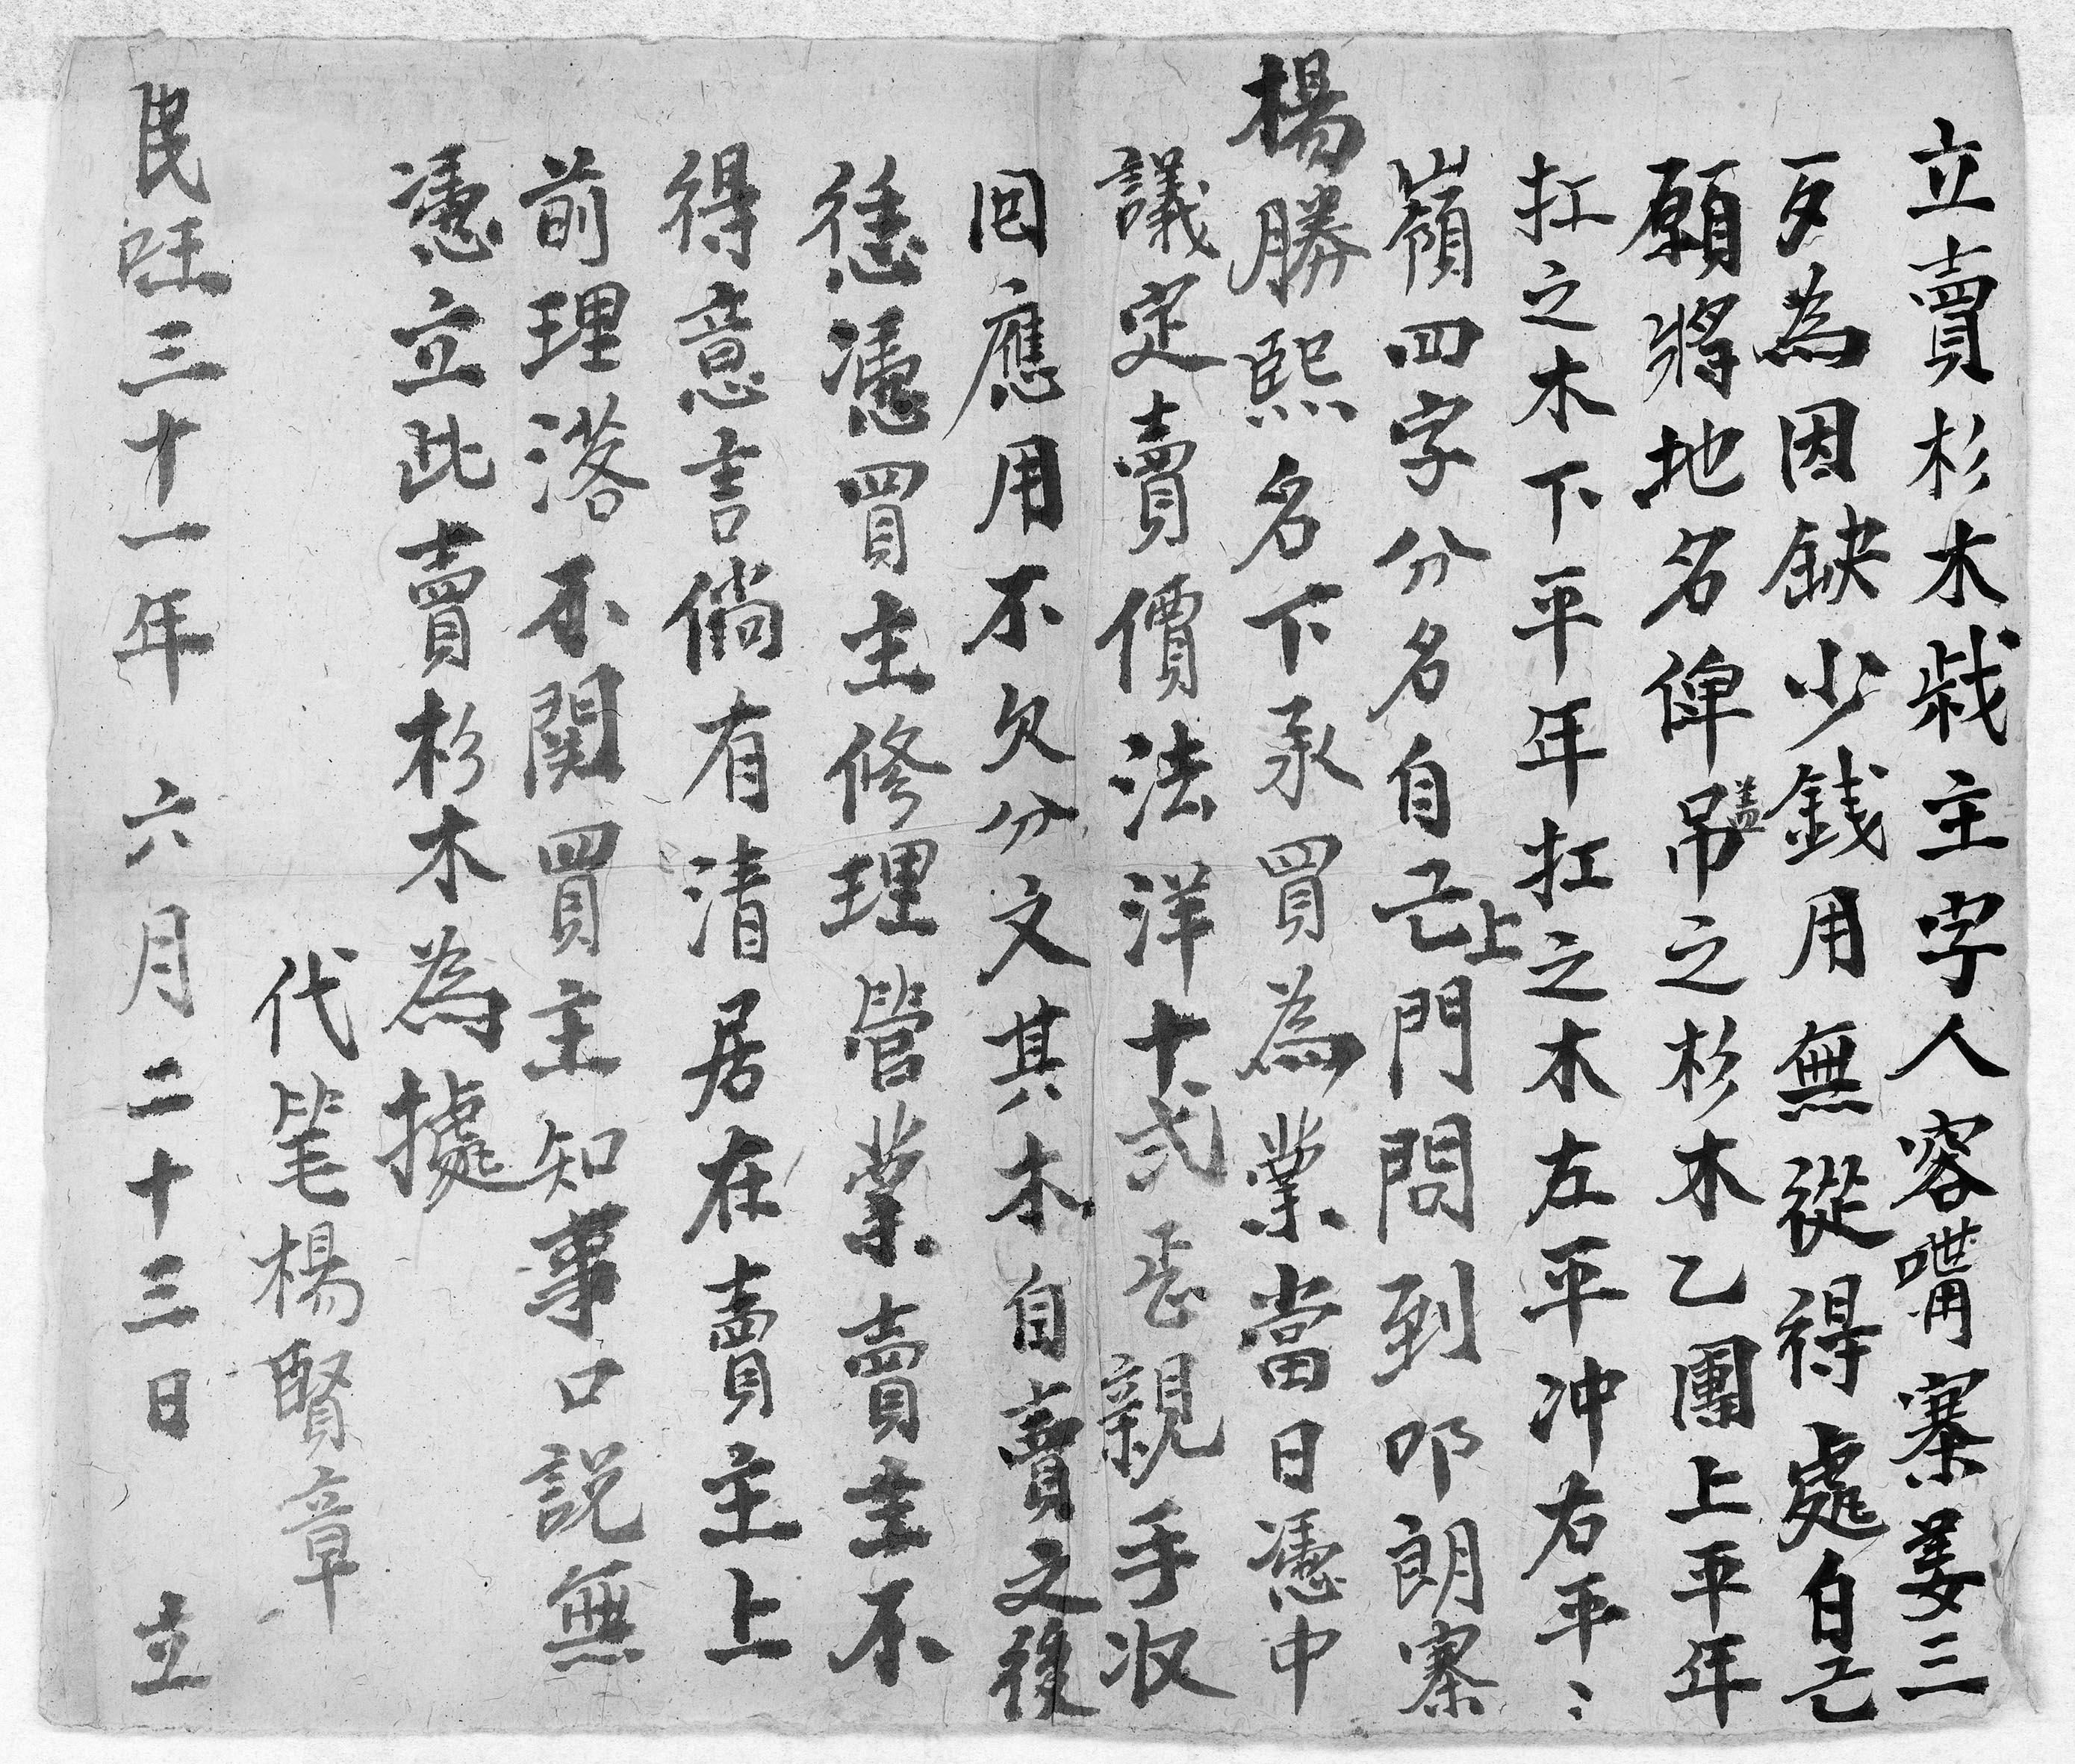 立賣杉木栽主字人容嘴寨姜三
歹為因缺少錢用無從得處自己
願將地名俾吊盖之杉木乙團上平年
扛之木下平年扛之木左平冲右平〻
嶺四字分名自己上門問到叩朗寨
楊勝熙名下承買為業當日憑中
議定賣價法洋十弍 親手收
回應用不欠分文其木自賣之後
憑買主修理管業賣主不
得意言倘有清居在賣主上
前理落不関買主知事口説無
憑立此賣杉木為據
代笔楊賢章
民囯三十一年六月二十三日立